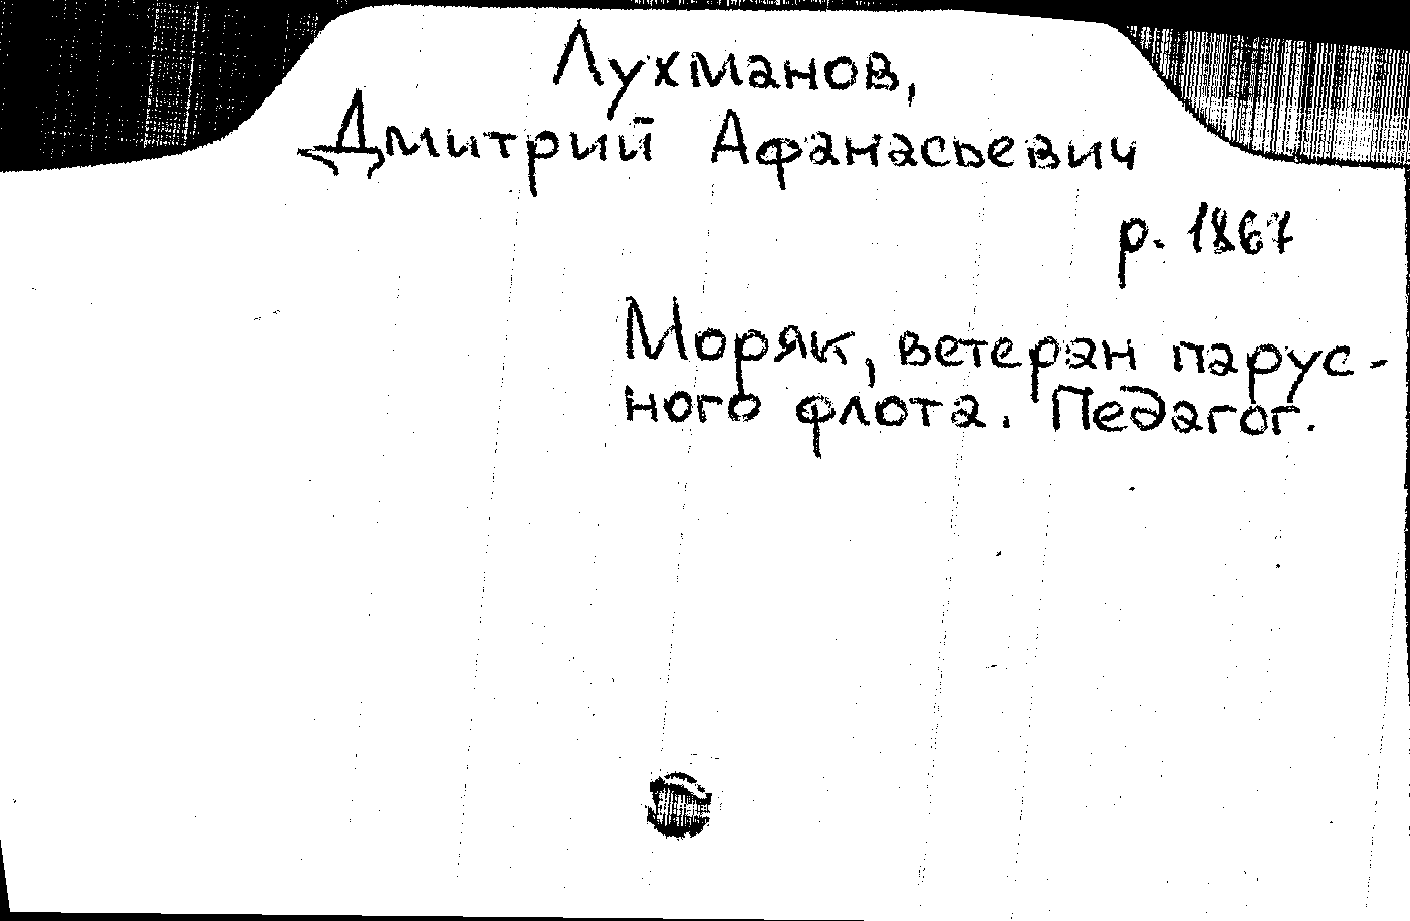 Лухманов,
Дмитрий Афанасьевич
р. 1867
Моряк, ветеран парус-
ного флота. Педагог.